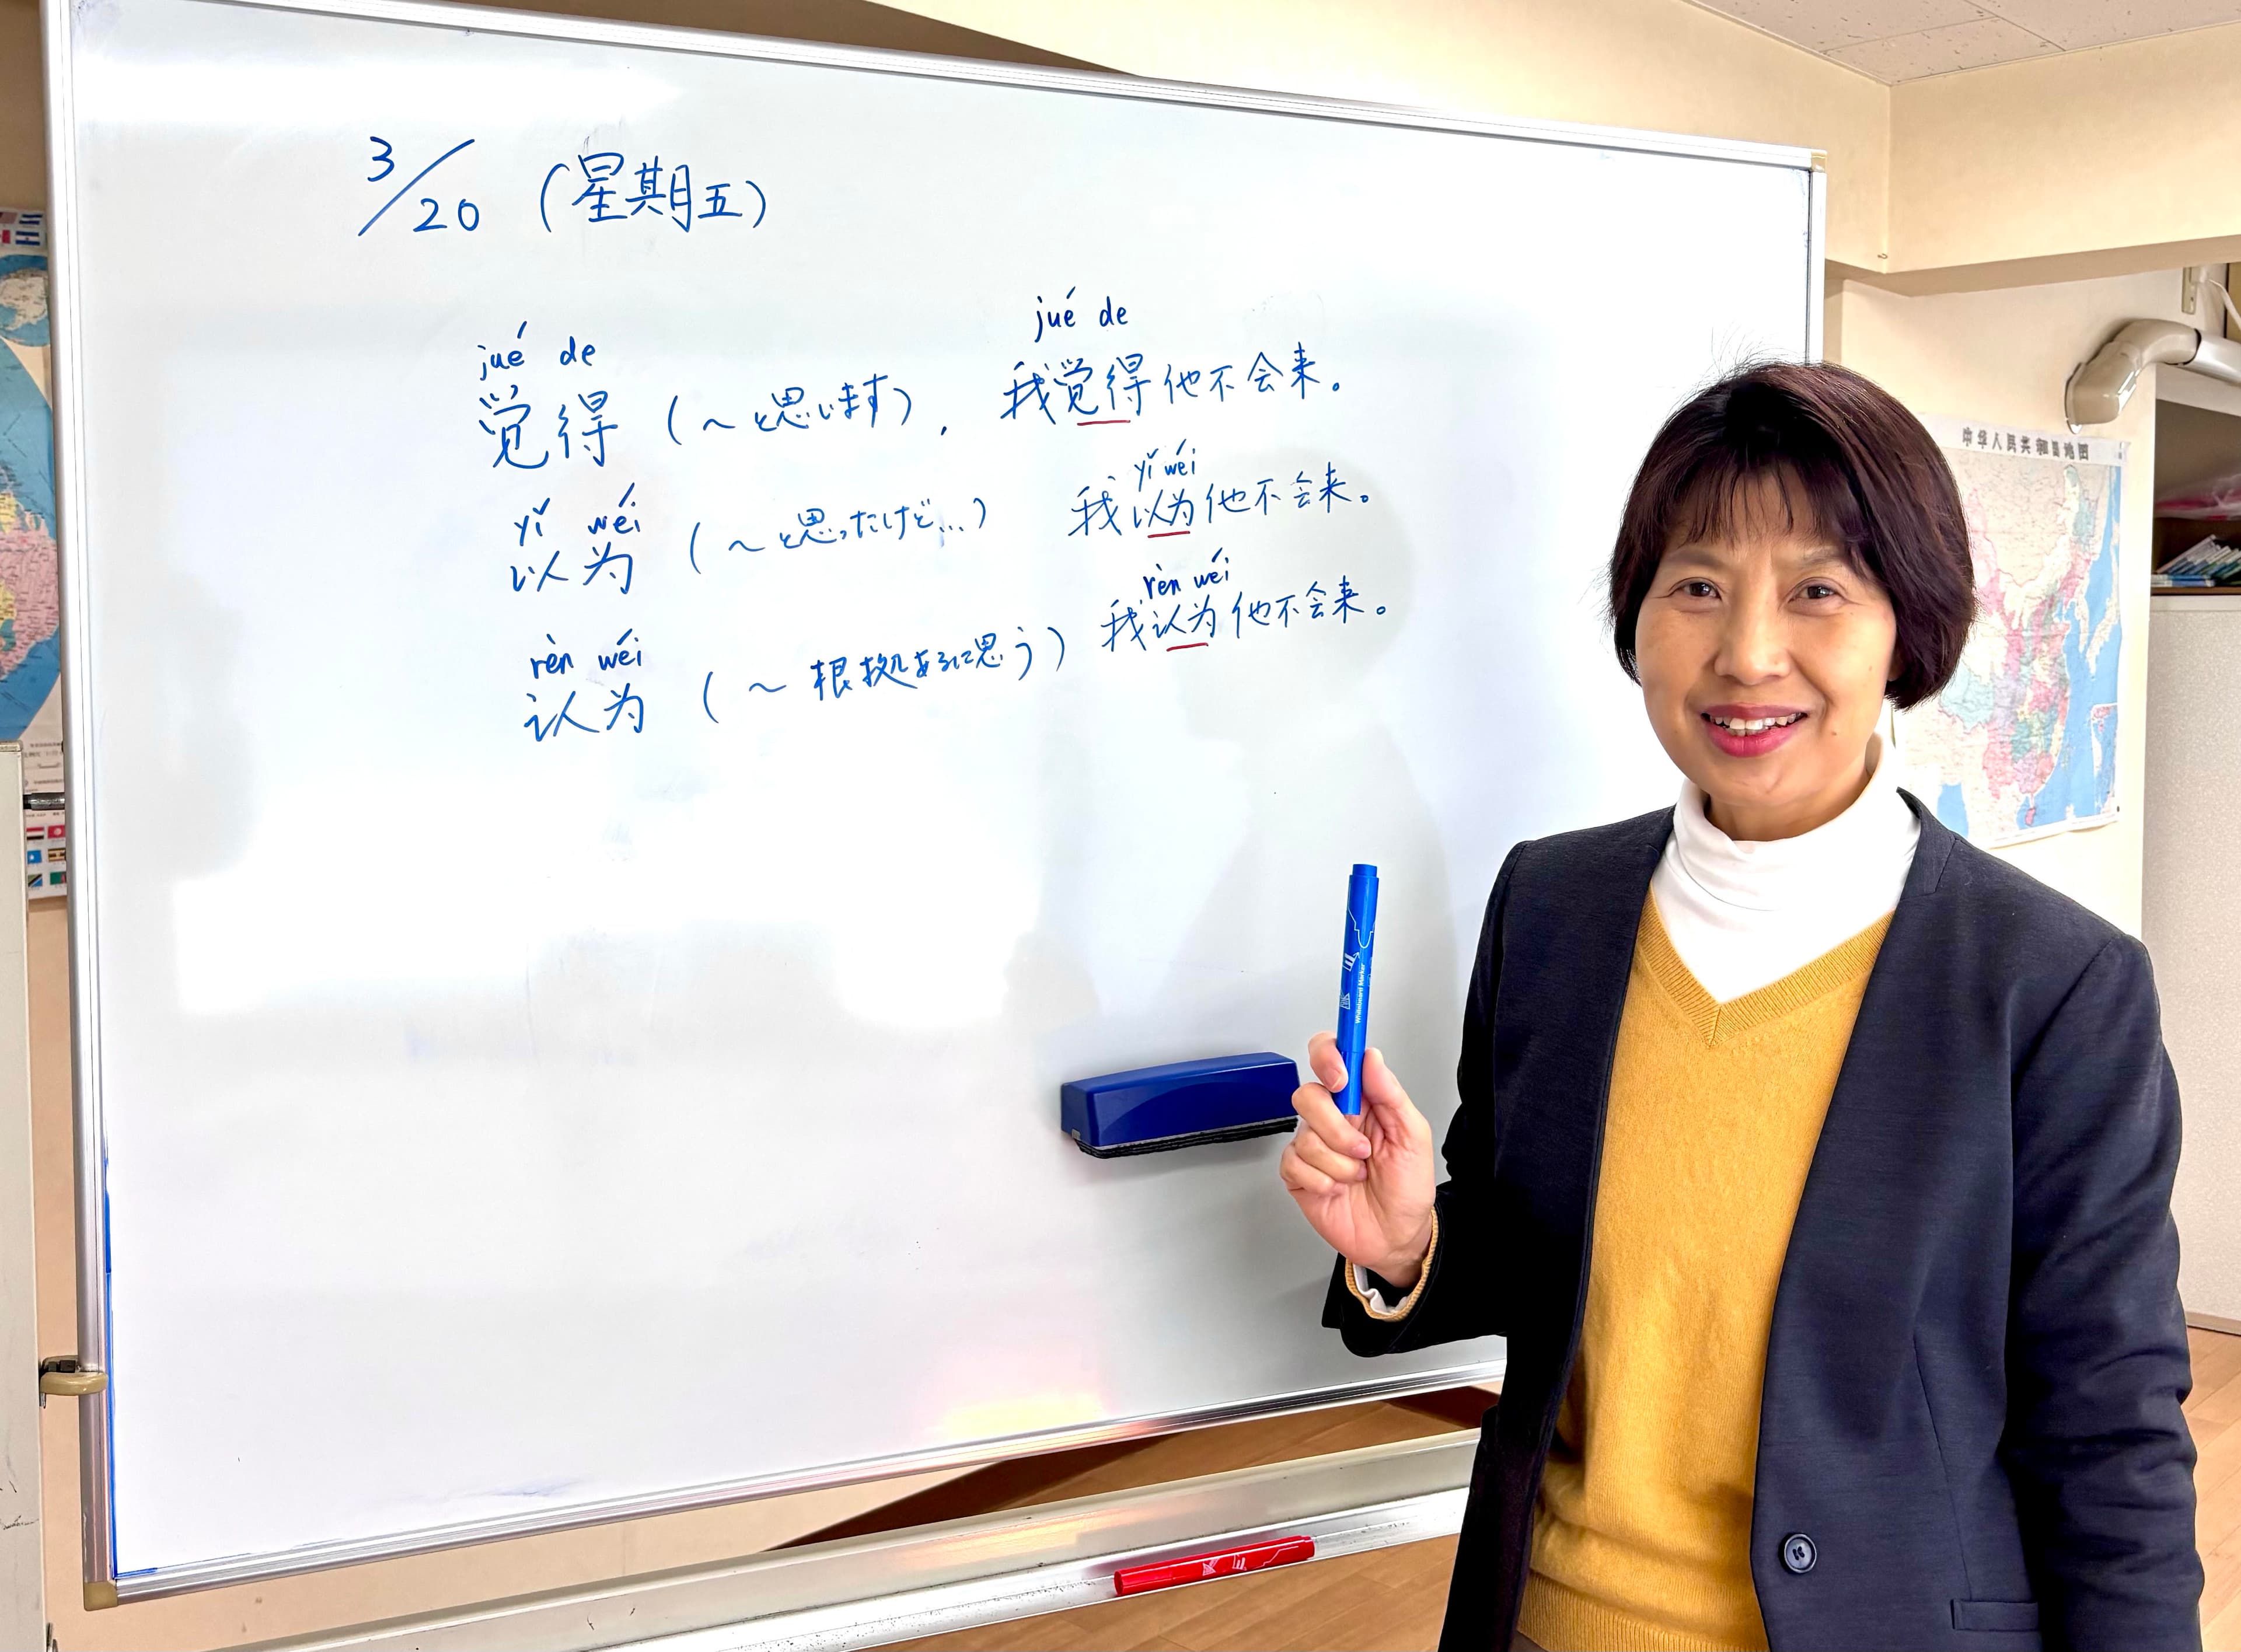 3/20 (星期五)
jué de
jué de
觉得 (～と思います), 我觉得他不会来。
yǐ wéi
yǐ wéi
以为 (～と思ったけど...) 我以为他不会来。
rèn wéi
rèn wéi
认为 (～根拠あるに思う) 我认为他不会来。
中华人民共和国地图
Whiteboard Marker